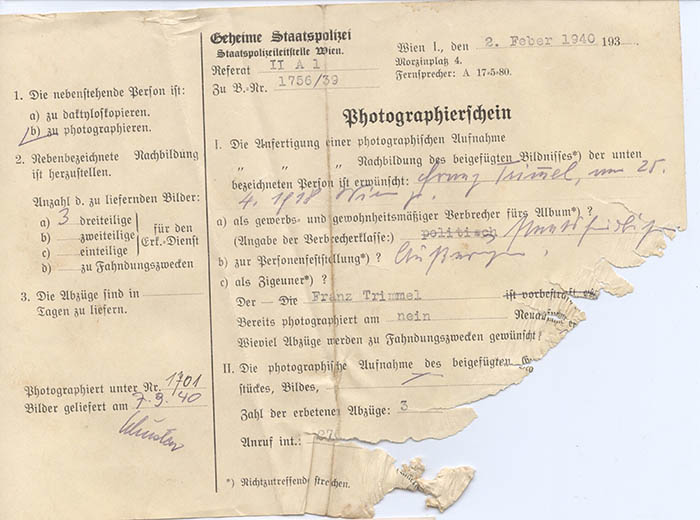 1. Die nebenstehende Person ist:
a) zu daktyloskopieren.
b) zu photographieren.
2. Nebenbezeichnete Nachbildung
ist herzustellen.
Anzahl d. zu liefernden Bilder:
a) 3 dreiteilige
b) zweiteilige
c) einteilige
für den
Erk.-Dienst
d) zu Fahndungszwecken
3. Die Abzüge sind in
Tagen zu liefern.
Photographiert unter Nr. 1701
Bilder geliefert am 7.3.40
Geheime Staatspolizei
Staatspolizeileitstelle Wien.
Referat II A 1
Zu B.-Nr. 1756/39
Wien I., den 2. Feber 1940 193
Morzinplatz 4.
Fernsprecher: A 17-5-80.
Photographierschein
I. Die Anfertigung einer photographischen Aufnahme
„ „ „ Nachbildung des beigefügten Bildnisses*) der unten
bezeichneten Person ist erwünscht: Franz Trimmel, am 25.
4. 1918 Wien
a) als gewerbs- und gewohnheitsmäßiger Verbrecher fürs Album*) ?
(Angabe der Verbrecherklasse:) politisch Staatsfeindliche
b) zur Personenfeststellung*) ? Äußerungen.
c) als Zigeuner*) ?
Der – Die Franz Trimmel ist vorbestraft
Bereits photographiert am nein
Wieviel Abzüge werden zu Fahndungszwecken gewünscht?
II. Die photographische Aufnahme des beigefügten
stückes, Bildes,
Zahl der erbetenen Abzüge: 3
Anruf int.:
*) Nichtzutreffendes streichen.